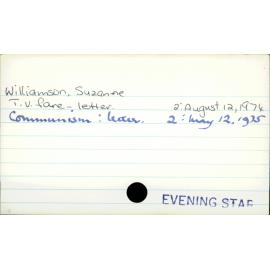 Williamson, Suzanne
T.V. fare - letter 2: August 12, 1974
Communism: letter. 2: May 12, 1975
EVENING STAR